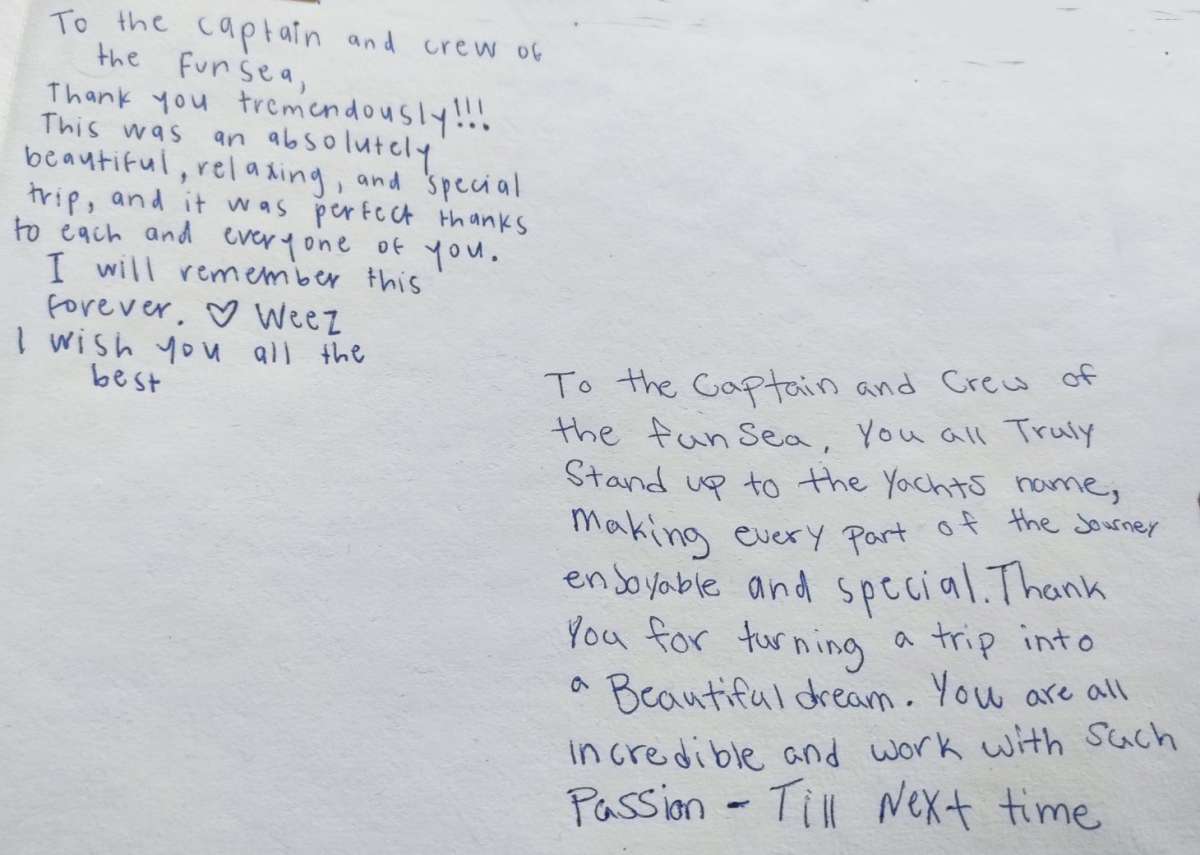 To the captain and crew of
the Fun Sea,
Thank you tremendously!!!
This was an absolutely
beautiful, relaxing, and special
trip, and it was perfect thanks
to each and everyone of you.
I will remember this
forever. ♡ Weez
I wish you all the
best
To the Captain and Crew of
the fun Sea, You all Truly
Stand up to the Yachts name,
Making every part of the Journey
enJoyable and special. Thank
You for turning a trip into
a Beautiful dream. You are all
incredible and work with Such
Passion - Till Next time